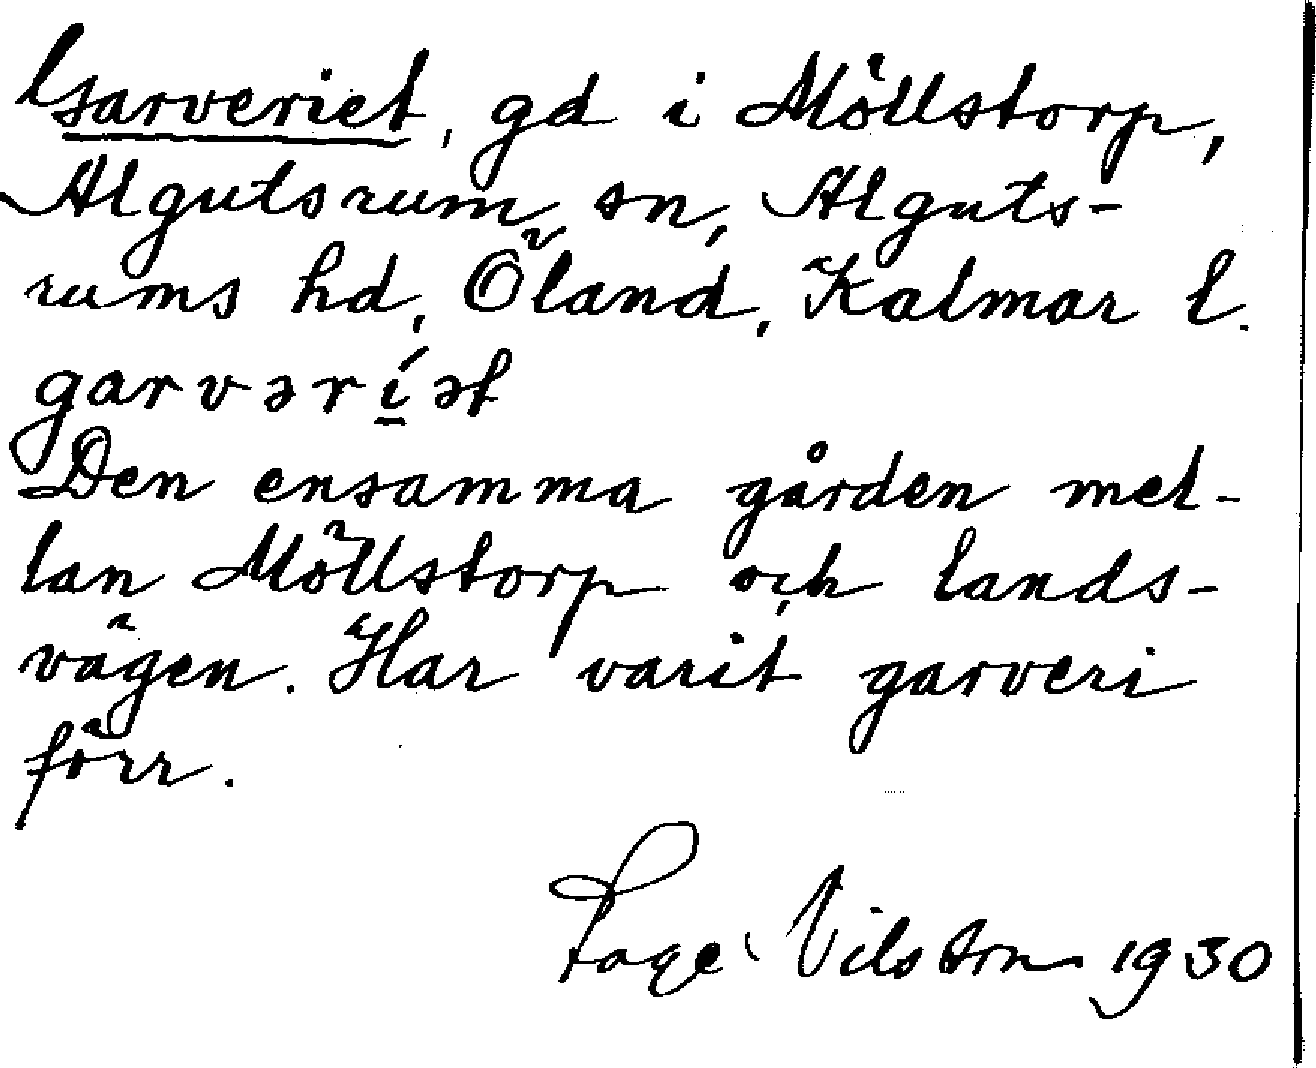 Garveriet, gd i Möllstorp,
Algutsrum sn, Alguts-
rums hd, Öland, Kalmar l.
garvərí̱ət
Den ensamma gården mel-
lan Möllstorp och lands-
vägen. Har varit garveri
förr.
Tage Nilsson 1930